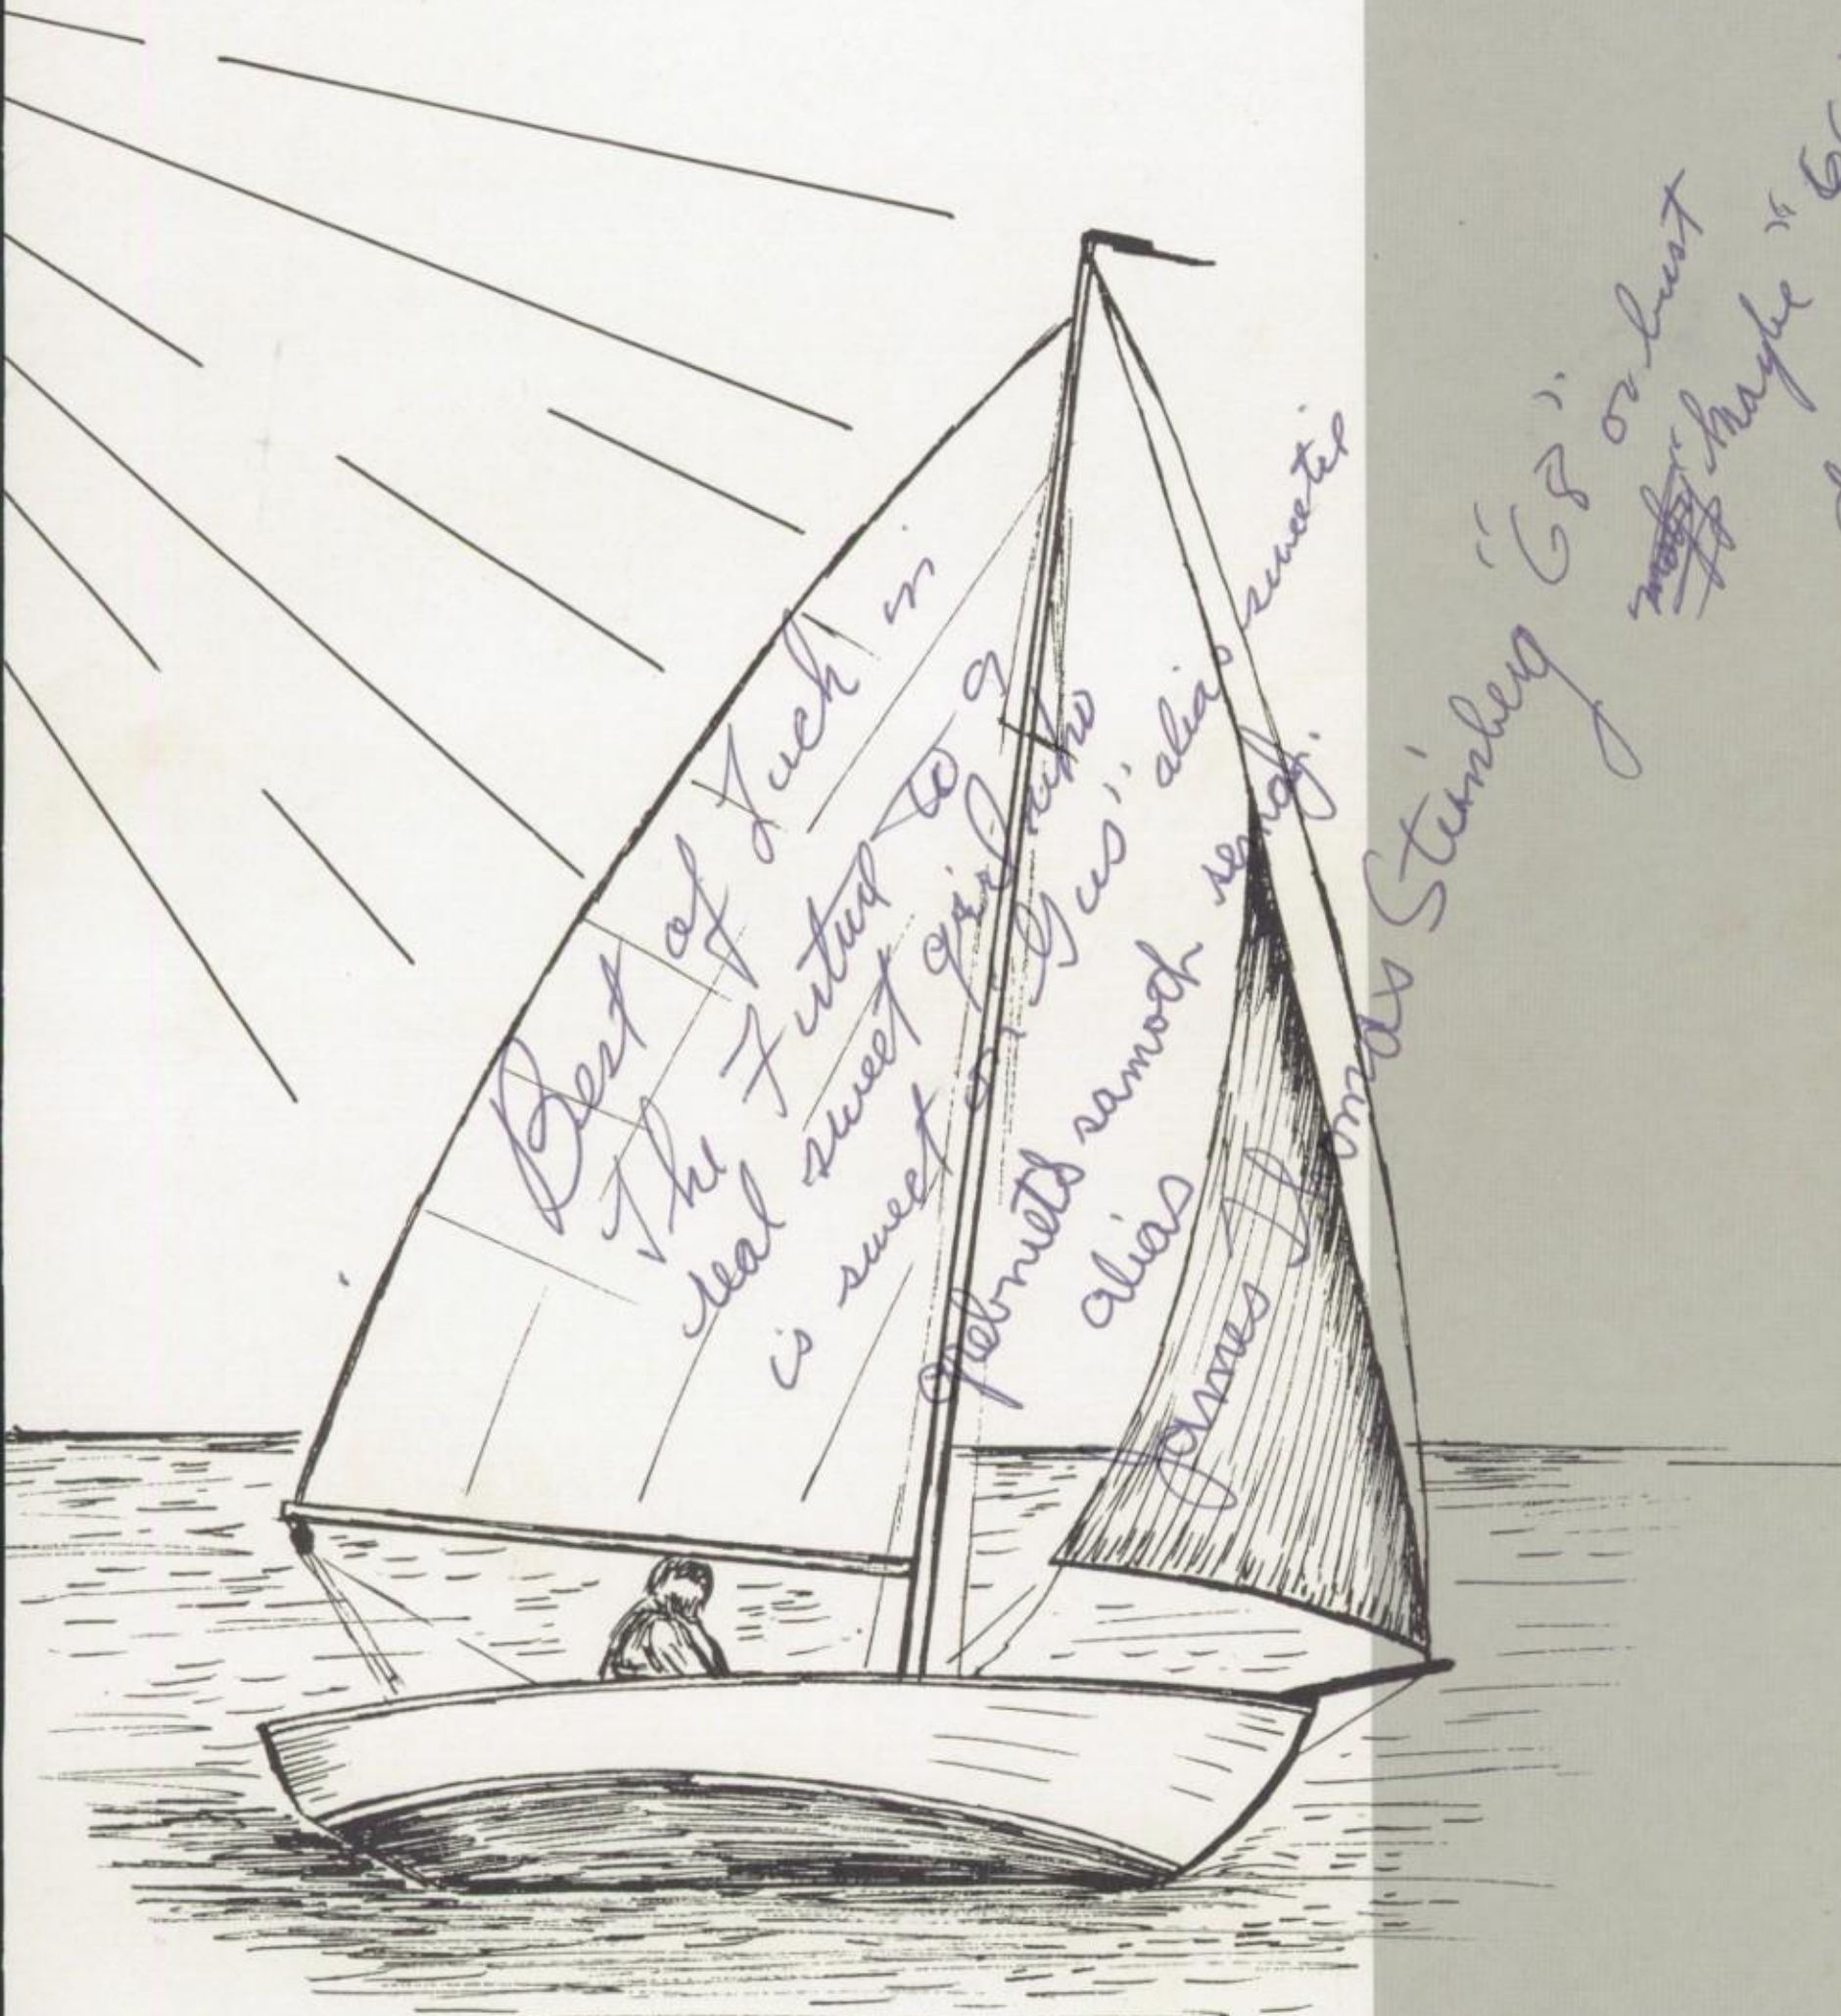 Best of Luck in
The Future to a
real sweet girl who
is sweet on "Gus" alias sweetie
grebnuets samoht semaj.
alias
James Thomas Steinberg "68"
or bust
maybe "